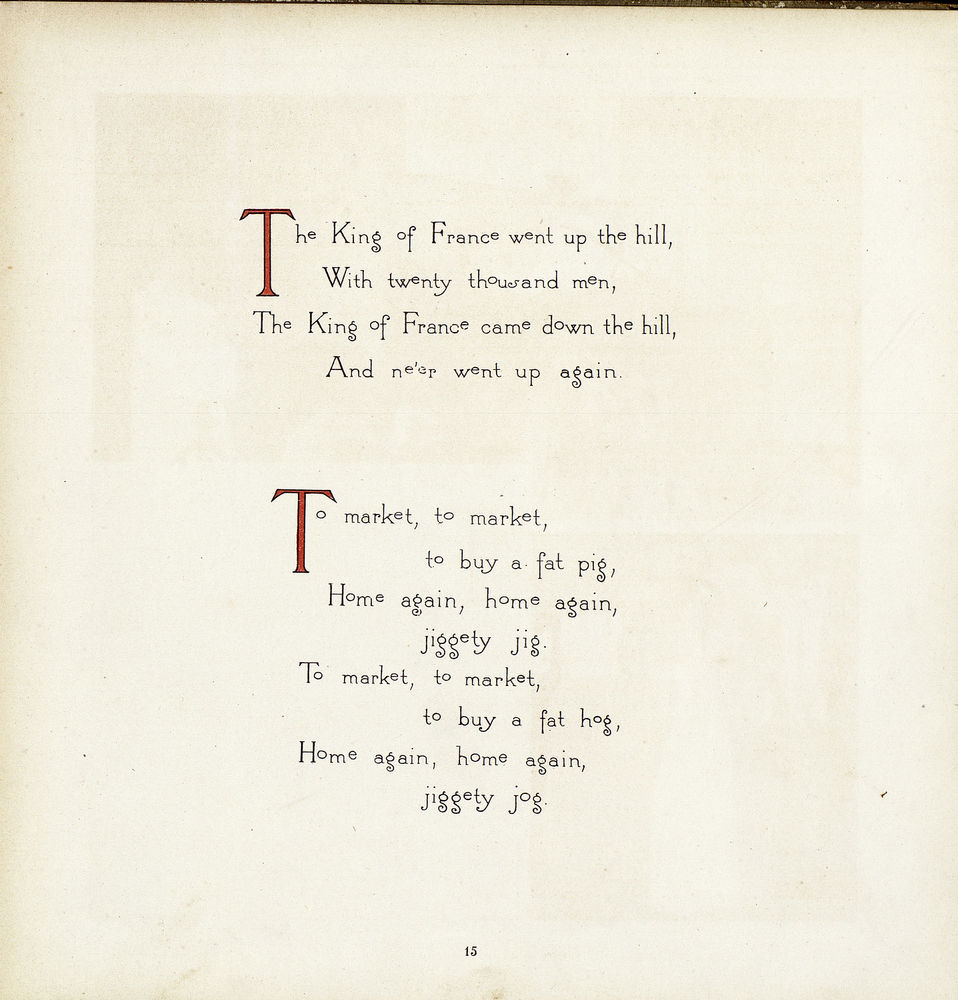 The King of France went up the hill,
With twenty thousand men,
The King of France came down the hill,
And ne'er went up again.
To market, to market,
to buy a fat pig,
Home again, home again,
jiggety jig.
To market, to market,
to buy a fat hog,
Home again, home again,
jiggety jog.
15